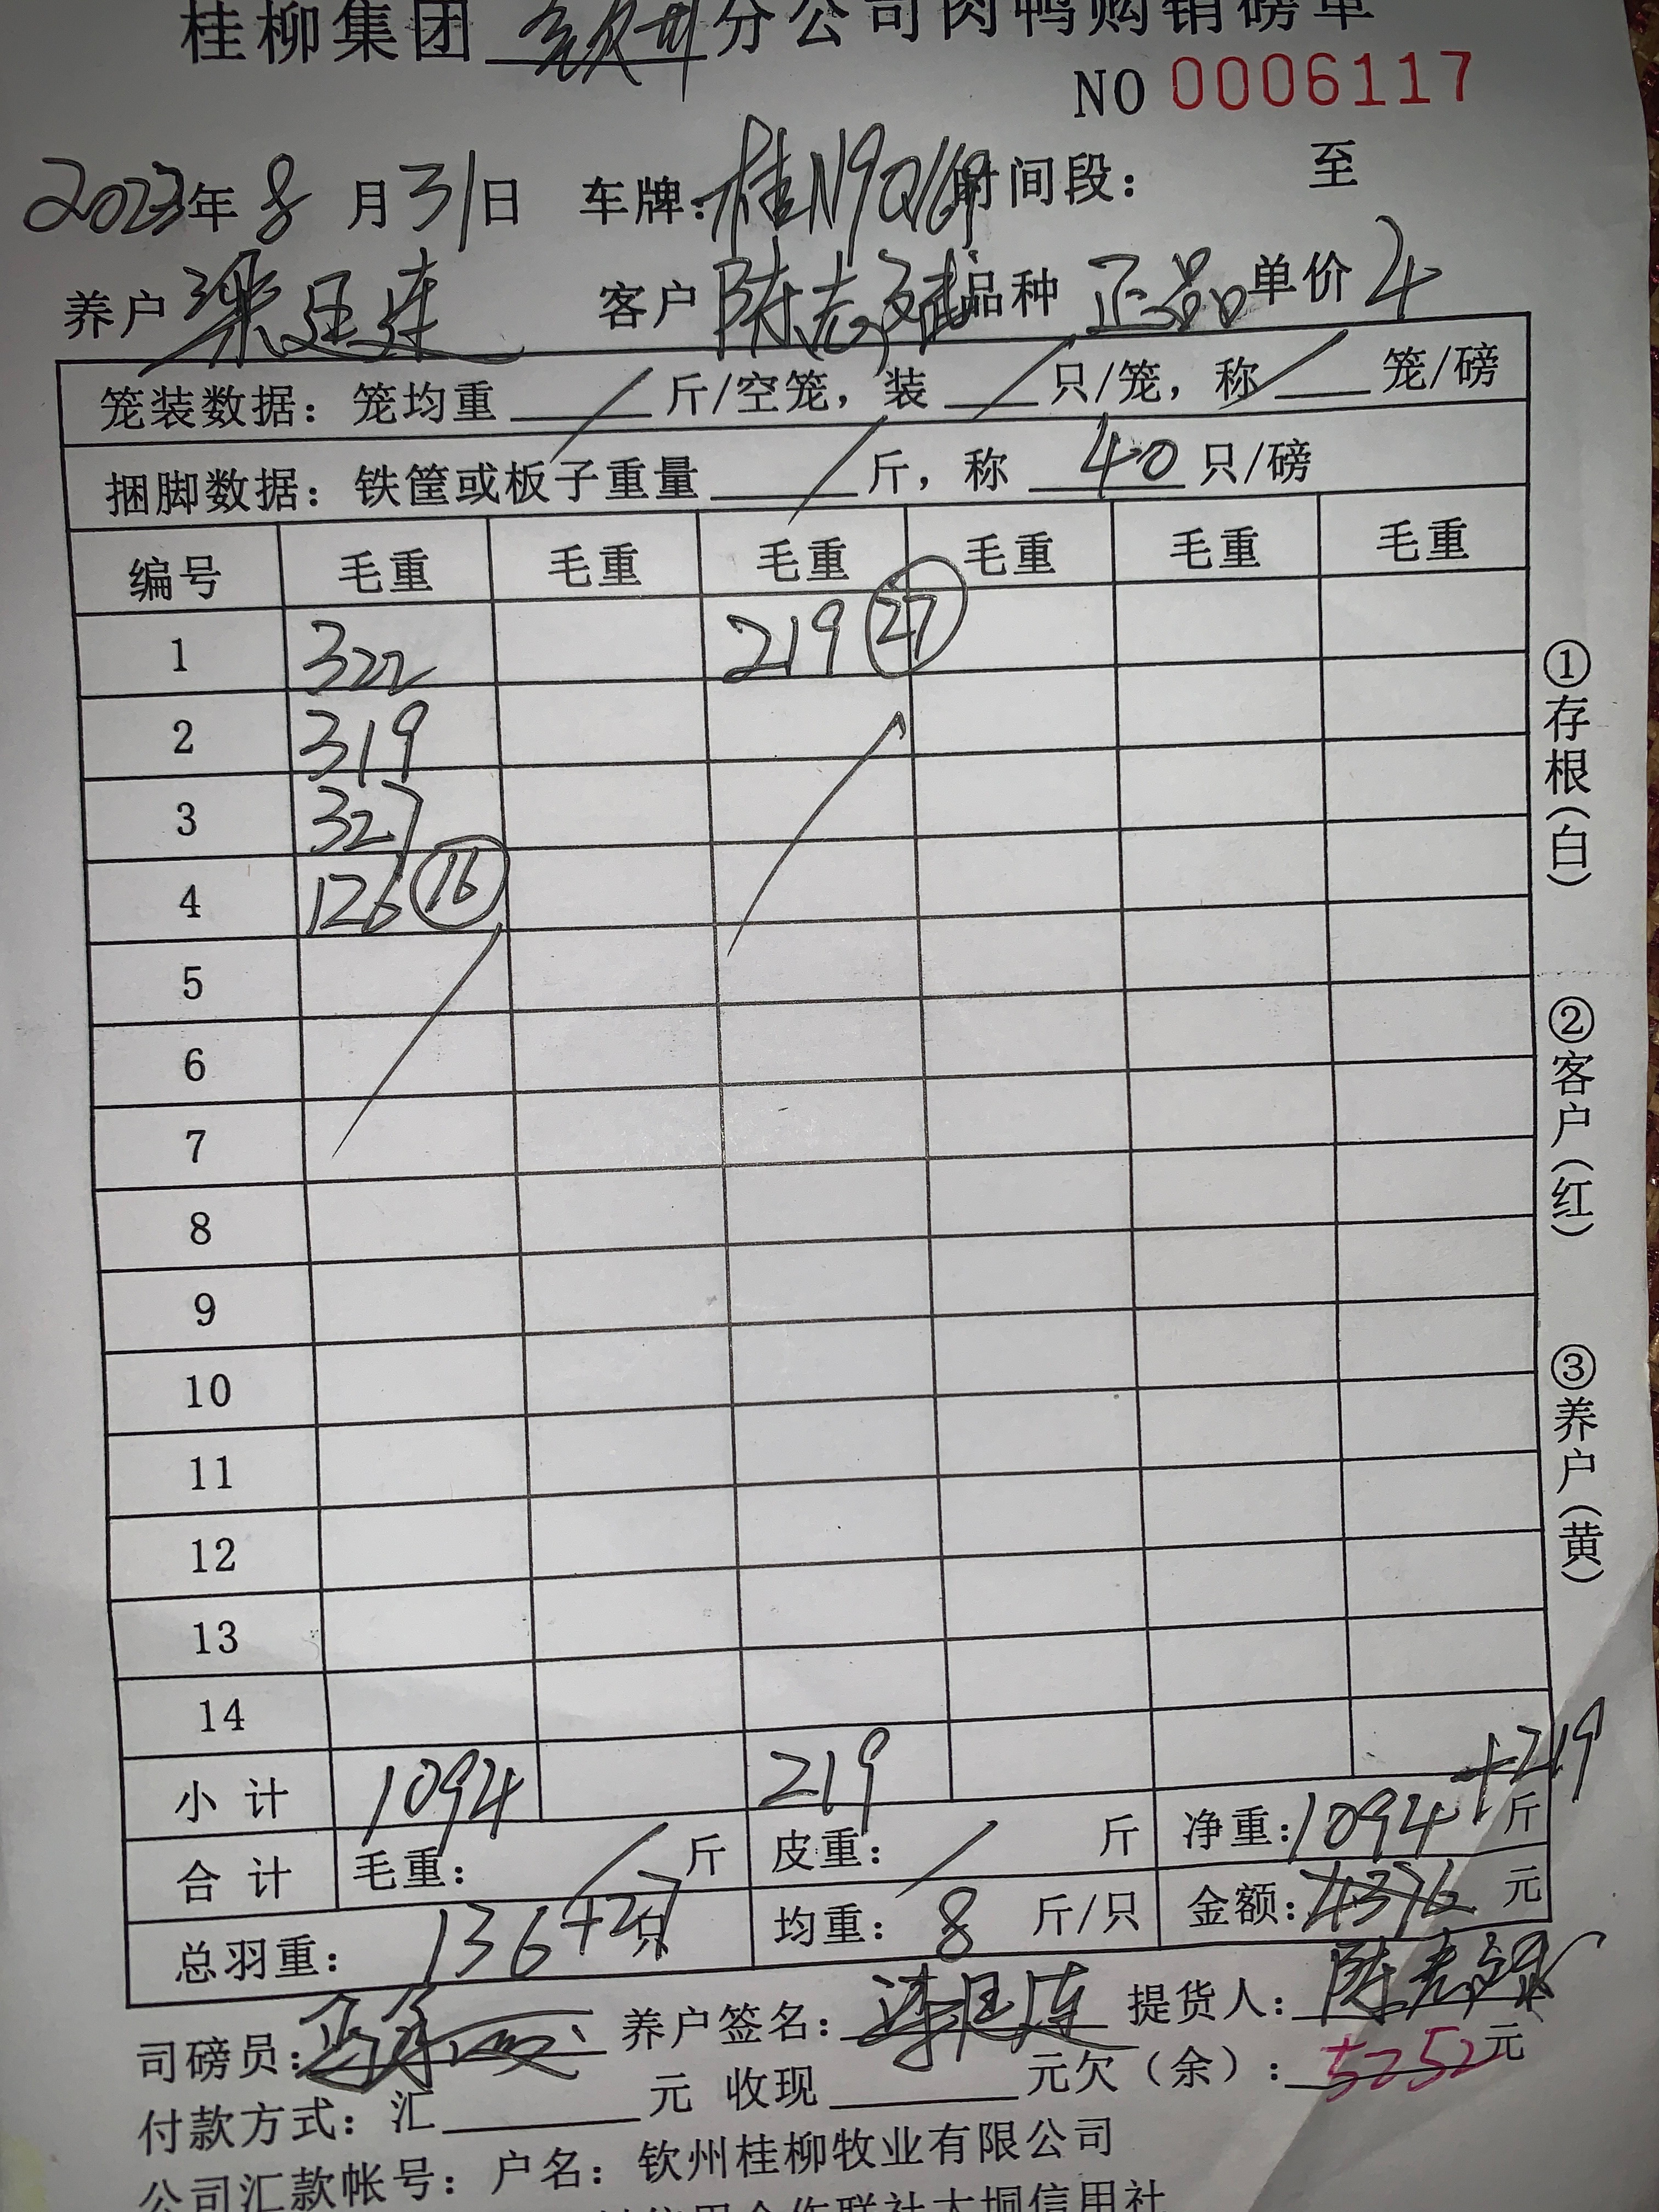 桂柳集团 钦州 分公司肉鸭购销磅单
NO 0006117
2023年 8 月 31日 车牌: 桂N9Q169 时间段: 至
养户 梁廷连 客户 陈志斌 品种 正品 单价 4
笼装数据: 笼均重 / 斤/空笼, 装 / 只/笼, 称 / 笼/磅
捆脚数据: 铁筐或板子重量 / 斤, 称 40 只/磅
编号 毛重 毛重 毛重 毛重 毛重 毛重
1 322 219 27
2 319
3 327
4 126 16
5
6
7
8
9
10
11
12
13
14
小计 1094 219
合计 毛重: / 斤 皮重: / 斤 净重: 1094+219 斤
总羽重: 136+27 只 均重: 8 斤/只 金额: 4376 元
司磅员: 养户签名: 梁廷连 提货人:
付款方式: 汇 元 收现 元欠(余): 5252元
公司汇款帐号: 户名: 钦州桂柳牧业有限公司
信用合作联社大垌信用社
①存根(白)
②客户(红)
③养户(黄)